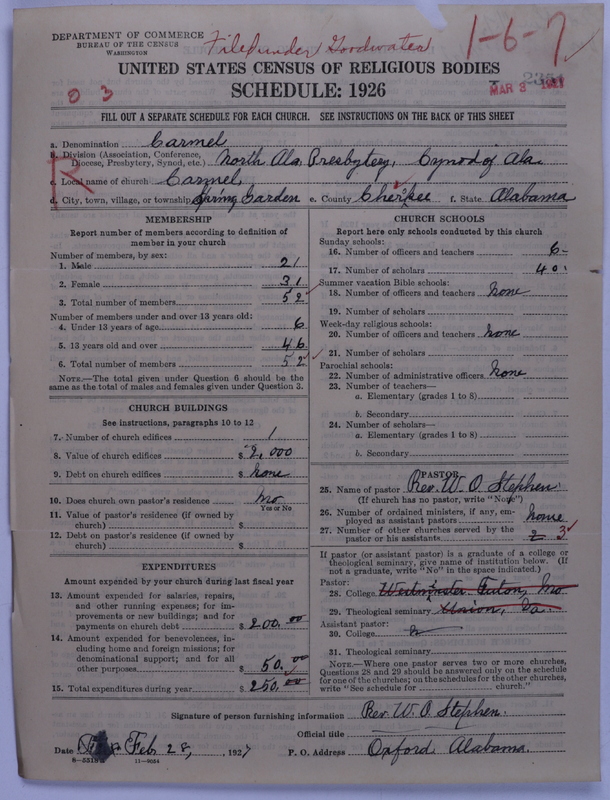 DEPARTMENT OF COMMERCE
BUREAU OF THE CENSUS
WASHINGTON
Filed under Goodwater
1-6-7
UNITED STATES CENSUS OF RELIGIOUS BODIES
SCHEDULE: 1926
0 3
MAR 3 1927
FILL OUT A SEPARATE SCHEDULE FOR EACH CHURCH. SEE INSTRUCTIONS ON THE BACK OF THIS SHEET
R
a. Denomination Carmel
b. Division (Association, Conference, Diocese, Presbytery, Synod, etc.) North Ala. Presbytery, Cynod of Ala
c. Local name of church Carmel,
d. City, town, village, or township Spring Garden e. County Cherkee f. State Alabama
MEMBERSHIP
Report number of members according to definition of
member in your church
Number of members, by sex:
1. Male 21
2. Female 31
3. Total number of members 52
Number of members under and over 13 years old:
4. Under 13 years of age 6
5. 13 years old and over 46
6. Total number of members 52
NOTE.—The total given under Question 6 should be
same as the total of males and females given under Question 3.
CHURCH BUILDINGS
See instructions, paragraphs 10 to 12
7. Number of church edifices 1
8. Value of church edifices $ 2,000
9. Debt on church edifices $ none
10. Does church own pastor's residence no
Yes or No
11. Value of pastor's residence (if owned by
church) $
12. Debt on pastor's residence (if owned by
church) $
EXPENDITURES
Amount expended by your church during last fiscal year
13. Amount expended for salaries, repairs,
and other running expenses; for im-
provements or new buildings; and for
payments on church debt $ 200.00
14. Amount expended for benevolences, in-
cluding home and foreign missions; for
denominational support; and for all
other purposes $ 50.00
15. Total expenditures during year $ 250.00
CHURCH SCHOOLS
Report here only schools conducted by this church
Sunday schools:
16. Number of officers and teachers 6
17. Number of scholars 40
Summer vacation Bible schools:
18. Number of officers and teachers none
19. Number of scholars
Week-day religious schools:
20. Number of officers and teachers none
21. Number of scholars
Parochial schools:
22. Number of administrative officers none
23. Number of teachers—
a. Elementary (grades 1 to 8)
b. Secondary
24. Number of scholars—
a. Elementary (grades 1 to 8)
b. Secondary
PASTOR
25. Name of pastor Rev. W. O. Stephen
(If church has no pastor, write "None")
26. Number of ordained ministers, if any, em-
ployed as assistant pastors none
27. Number of other churches served by the
pastor or his assistants 2 3
If pastor (or assistant pastor) is a graduate of a college or
theological seminary, give name of institution below. (If
not a graduate, write "No" in the space indicated.)
Pastor:
28. College Westminster Futon, Mo
29. Theological seminary Union, Va.
Assistant pastor:
30. College
31. Theological seminary
NOTE.—Where one pastor serves two or more churches,
Questions 28 and 29 should be answered only on the schedule
for one of the churches; on the schedules for the other churches,
write "See schedule for church."
Signature of person furnishing information Rev. W. O. Stephen.
Official title
Date Feb 28, 1927 P. O. Address Oxford Alabama.
8-5518 11-9054